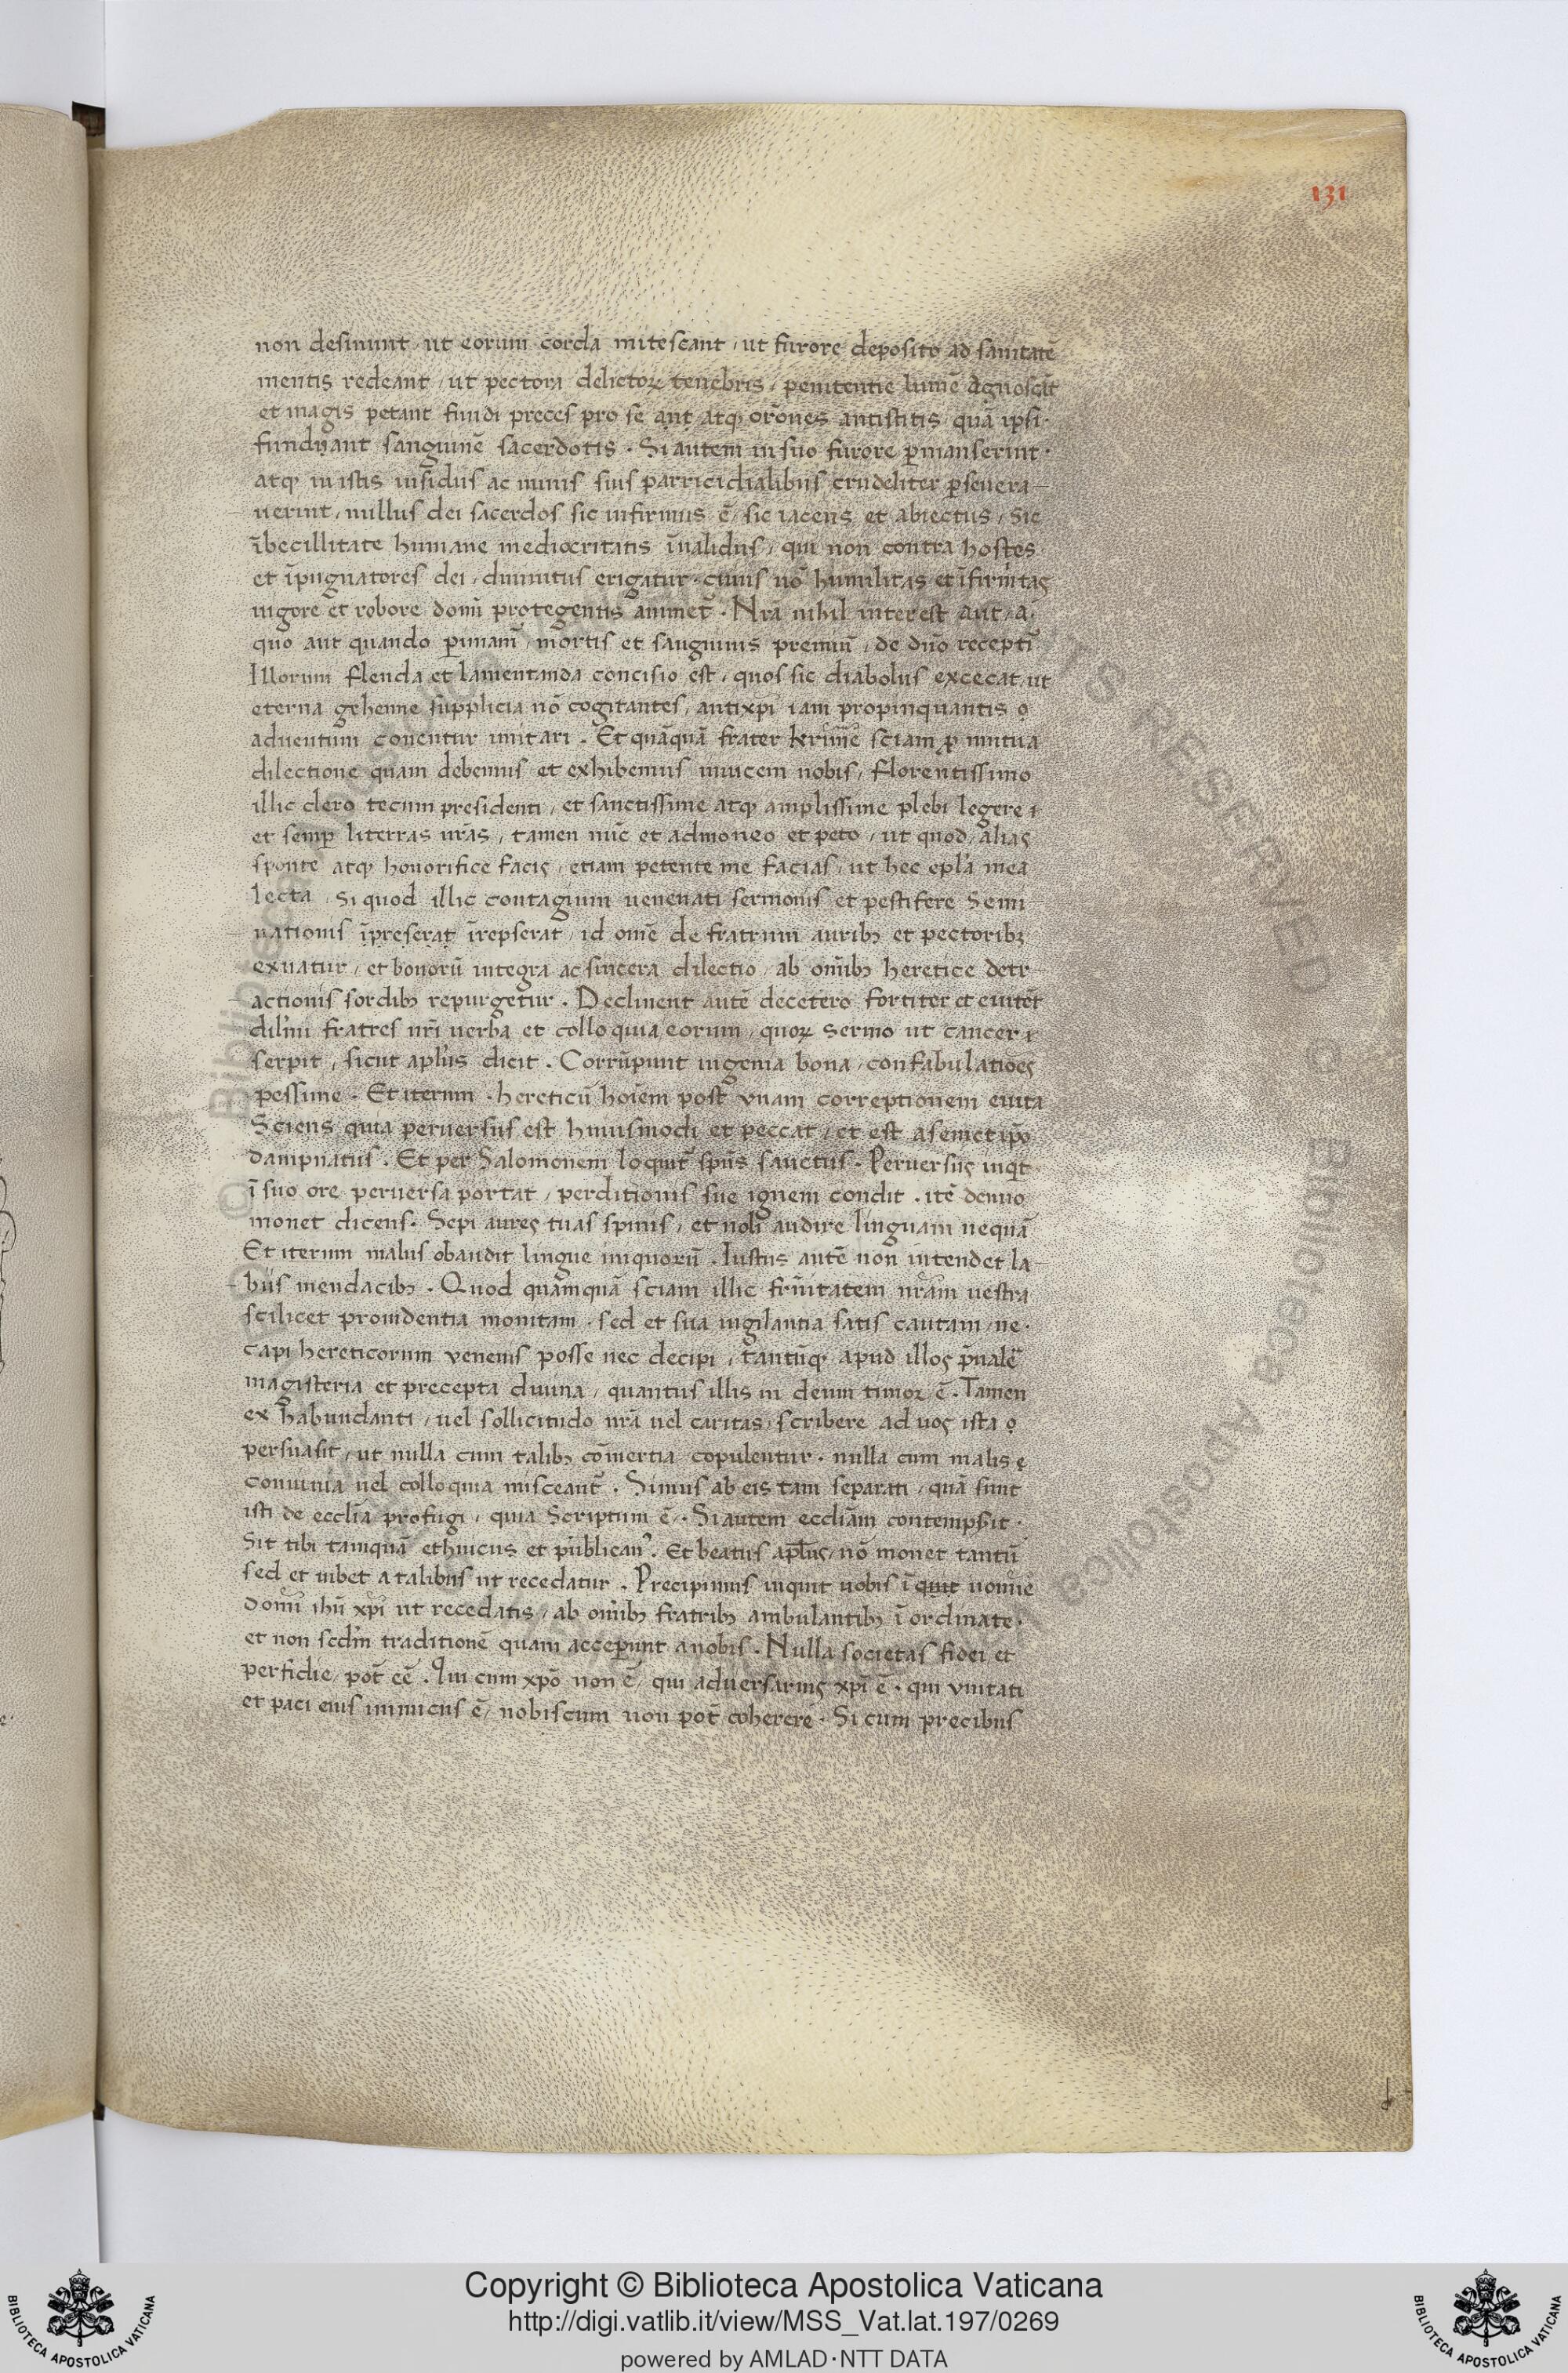 131
non desinunt, ut eorum corda mitescant, ut furore deposito ad sanitatē
mentis redeant, ut pectora delictoꝝ tenebris, penitentie lumē agnoscāt
et magis petant fundi preces pro se aut atqꝫ orōnes antistitis, quā ipsi
fundūant sanguinē sacerdotis. Si autem in suo furore ꝑmanserint.
atqꝫ in istis insidiis ac minis suis parricidialibus crudeliter ꝑseuera
uerint, nullus dei sacerdos sic infirmus ē, sic iacens et abiectus, sic
ībecillitate humane mediocritatis īualidus, qui non contra hostes
et īpugnatores dei, diuinitus erigatur. cuius nō humilitas et īfirmitas
uigore et robore domī protegentis animet̄. Nr̄a nihil interest aut a
quo aut quando ꝑimam̄, mortis et sanguinis premiū, de dn̄o receptī
Illorum flenda et lamentanda concisio est, quos sic diabolus excecat ut
eterna gehenne supplicia nō cogitantes, antixpī iam propinquantis
aduentum conentur imitari. Et quāquā frater krīme sciam ꝓ mutua
dilectione quam debemus et exhibemus inuicem nobis, florentissimo
illic clero tecum presidenti, et sanctissime atqꝫ amplissime plebi legere
et semꝑ litterras nr̄as, tamen nūc et admoneo et peto, ut quod alias
sponte atqꝫ honorifice facis, etiam petente me facias, ut hec epl̄a mea
lecta, si quod illic contagium uenenati sermonis et pestifere semi
nationis īpreserat īrepserat, id omē de fratrum auribꝫ et pectoribꝫ
exuatur, et bonorū integra ac sincera dilectio, ab om̄ibꝫ heretice detr
actionis sordibꝫ repurgetur. Declinent autē decetero fortiter et euitēt
dil̄mi fratres nr̄i uerba et colloquia eorum, quoꝝ sermo ut cancer
serpit, sicut apl̄us dicit. Corrūpunt ingenia bona, confabulatiōes
pessime. Et iterum. hereticū hoīem post vnam correptionem euita
Sciens quia peruersus est huiusmodi et peccat, et est a semetip̄o
dampnatus. Et per Salomonem loquit̄ sp̄us sanctus. Peruersus inqt̄
ī suo ore peruersa portat, perditionis sue ignem condit. itē denuo
monet dicens. Sepi aures tuas spinis, et noli audire linguam nequā
Et iterum malus obaudit lingue iniquorū. Iustus autē non intendet la
biis mendacibꝫ. Quod quāmquā sciam illic fr̄nitatem nr̄am uestra
scilicet prouidentia monitam, sed et sua uigilantia satis cautam, ne
capi hereticorum venenis posse nec decipi, tantūqꝫ apud illos p̄ualē
magisteria et precepta diuina, quantus illis in deum timor ē. Tamen
ex habundanti, uel sollicitudo nr̄a uel caritas, scribere ad uos ista
persuasit, ut nulla cum talibꝫ cōmertia copulentur. nulla cum malis
conuiuia uel colloquia misceant̄. Simus ab eis tam separati, quā sunt
isti de eccl̄ia profugi, quia scriptum ē. Si autem eccl̄iam contempsit.
Sit tibi tamquā ethnicus et publican'. Et beatus apl̄us, nō monet tantū
sed et iubet a talibus ut recedatur. Precipimus inquit uobis ī quit noīe
domī ihū xpī ut recedatis, ab om̄ibꝫ fratribꝫ ambulantibꝫ īordinate.
et non scd̄m traditionē quam acceꝑunt a nobis. Nulla societas fidei et
perfidie, pōt eē. Qui cum xpō non ē, qui aduersarius xpī ē. qui vnitati
et paci eius inimicus ē, nobiscum non pōt coherere. Si cum precibus
Copyright © Biblioteca Apostolica Vaticana
http://digi.vatlib.it/view/MSS_Vat.lat.197/0269
powered by AMLAD·NTT DATA